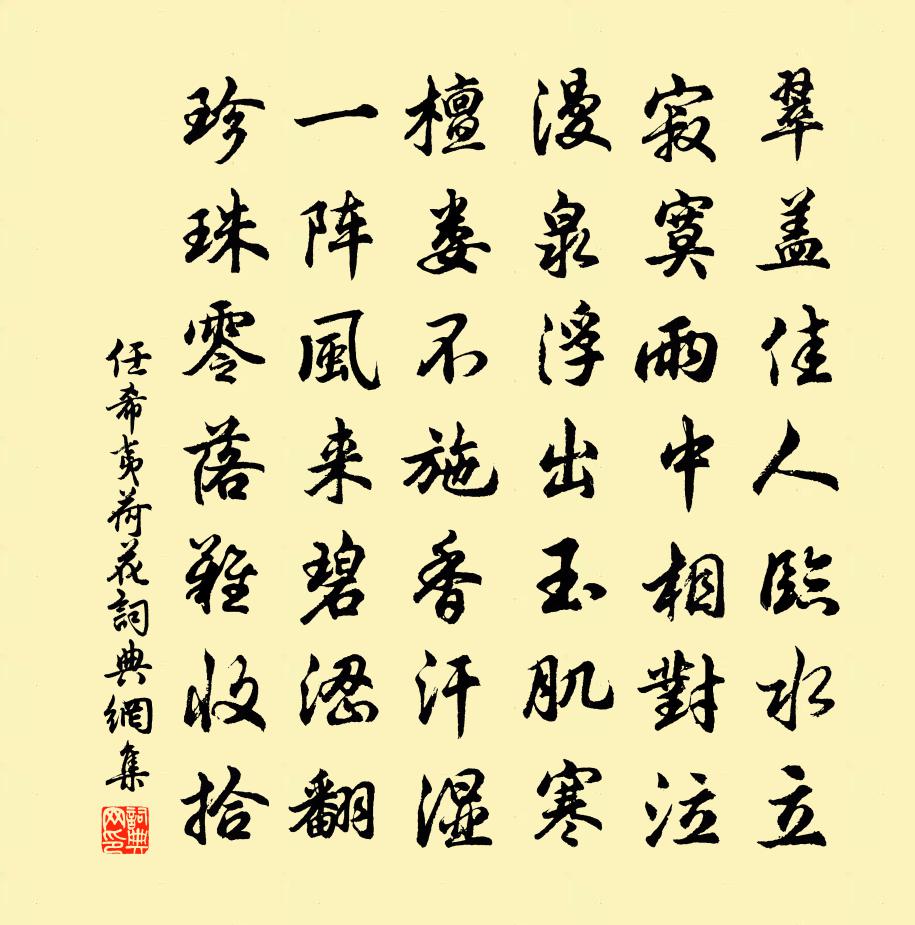 翠盖佳人臨水立
寂寞雨中相對泣
漫泉浮出玉肌寒
檀娄不施香汗湿
一阵風来碧翻
珍珠零落難收拾
任希夷荷花詞典網集
詞典
网印